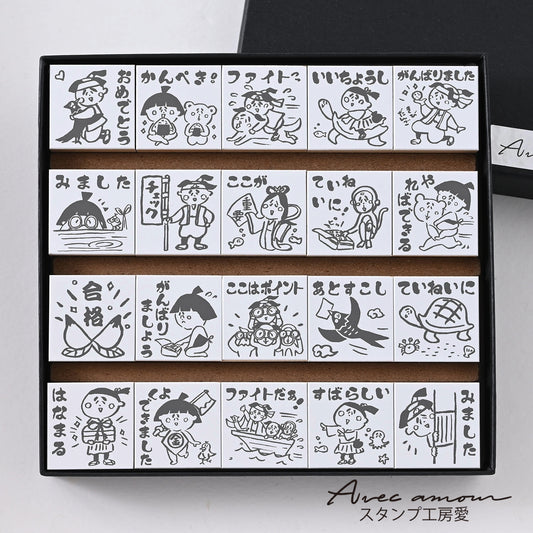 おめでとう
かんぺき!
ファイトっ
いいちょうし
がんばりました
みました
チェック
ここが
重要
ていねいに!
やればできる
合格
がんばり
ましょう
ここはポイント
あとすこし
ていねいに
はなまる
よく
できました
ファイトだぁ!
すばらしい
みました
Avec amour
スタンプ工房愛